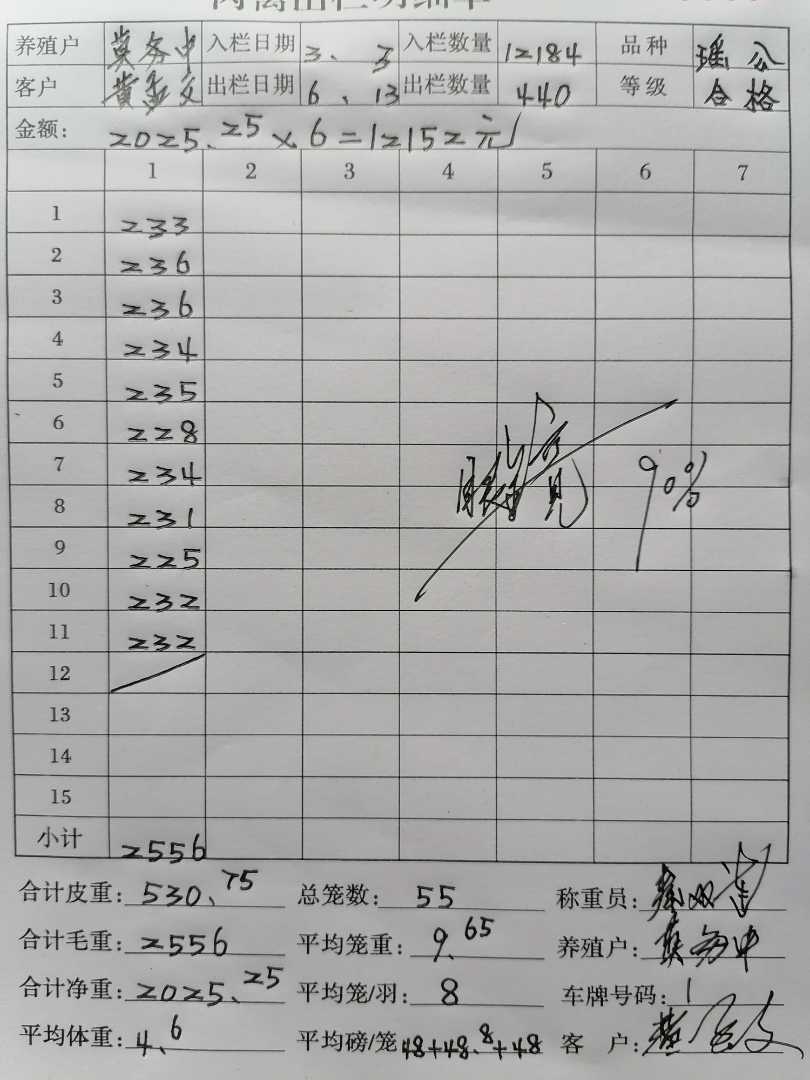 养殖户 莫务中 入栏日期 3、3 入栏数量 12184 品种 瑶公
客户 黄孟交 出栏日期 6、13 出栏数量 440 等级 合格
金额: 2025.25×6=12152元
1 2 3 4 5 6 7
1 233
2 236
3 236
4 234
5 235
6 228
7 234
8 231
9 225
10 232
11 232
12
13
14
15
90%
小计 2556
合计皮重: 530.75 总笼数: 55 称重员:
合计毛重: 2556 平均笼重: 9.65 养殖户: 莫务中
合计净重: 2025.25 平均笼/羽: 8 车牌号码: 1
平均体重: 4.6 平均磅/笼 48+48.8+48 客户: